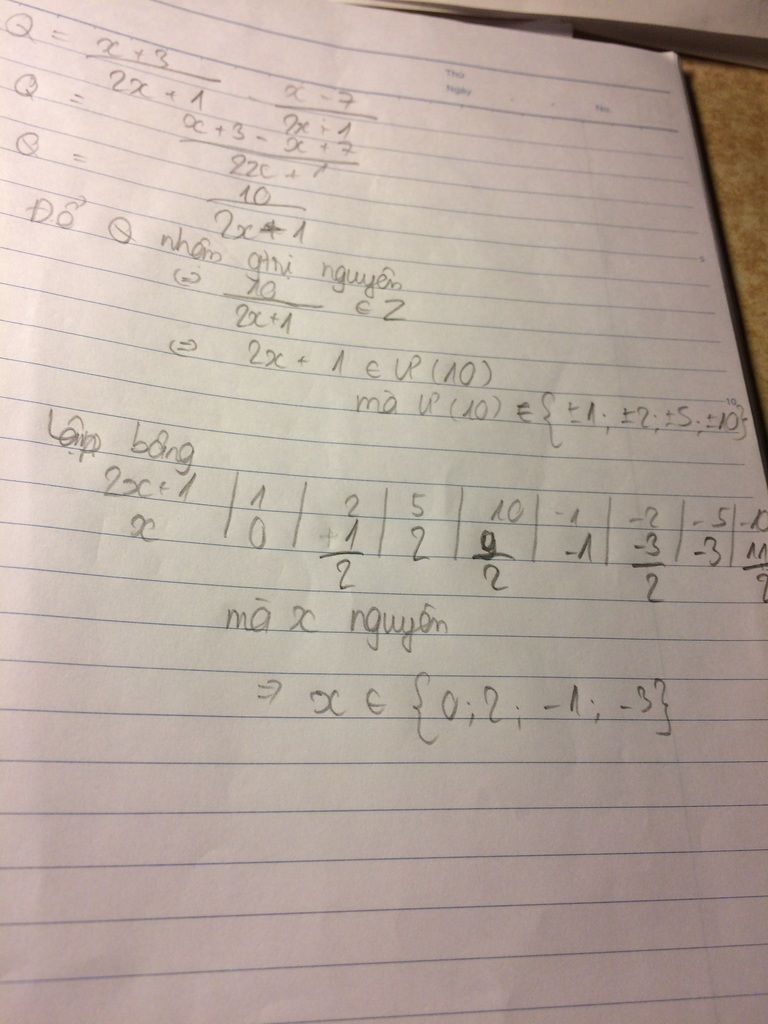 Thứ
Ngày No.
Q = x + 3 / 2x + 1 - x - 7 / 2x + 1
Q = x + 3 - x + 7 / 2x + 1
Q = 10 / 2x + 1
Để Q nhận gtrị nguyên
⇔ 10 / 2x+1 ∈ Z
⇔ 2x + 1 ∈ Ư(10)
mà Ư(10) ∈ {±1; ±2; ±5; ±10}
Lập bảng
2x+1 | 1 | 2 | 5 | 10 | -1 | -2 | -5 | -10
x | 0 | 1/2 | 2 | 9/2 | -1 | -3/2 | -3 | 11/2
mà x nguyên
⇒ x ∈ {0; 2; -1; -3}